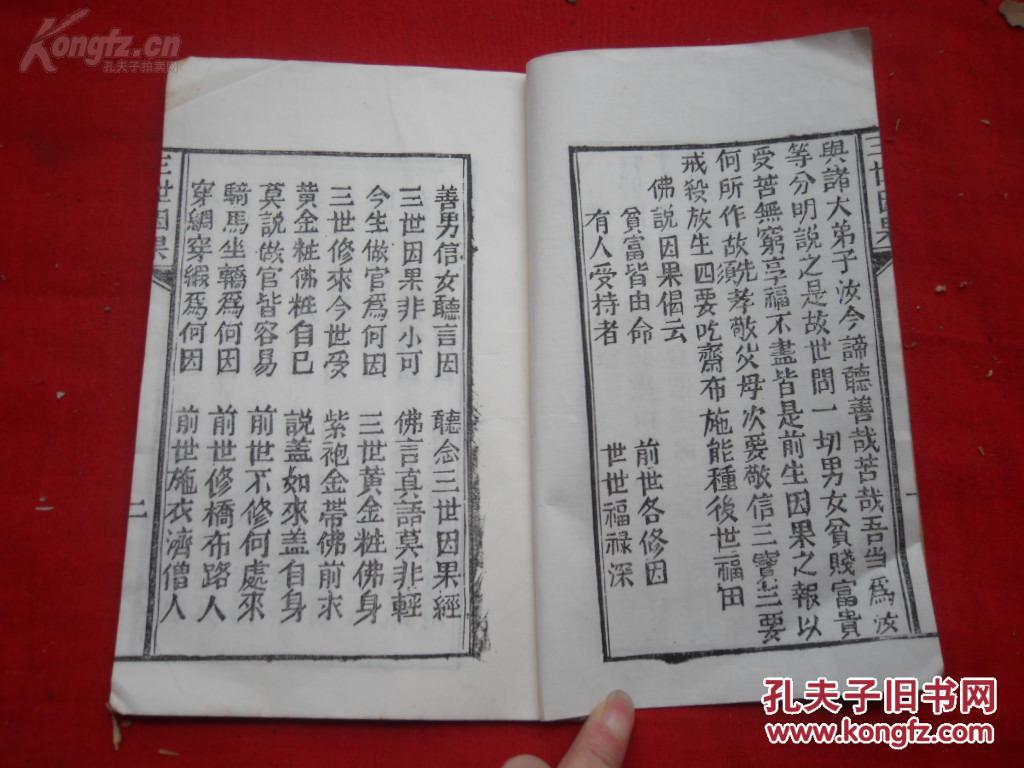 三世因果
一
與諸大弟子汝今諦聽善哉苦哉吾当爲汝
等分明説之是故世間一切男女貧賤富貴
受苦無窮享福不盡皆是前生因果之報以
何所作故須先孝敬父母次要敬信三寶三要
戒殺放生四要吃齋布施能種後世福田
佛説因果偈云
貧富皆由命 前世各修因
有人受持者 世世福禄深
善男信女聽言因 聽念三世因果經
三世因果非小可 佛言真語莫非輕
今生做官爲何因 三世黄金粧佛身
三世修來今世受 紫袍金帯佛前求
黄金粧佛粧自己 説盖如來盖自身
莫説做官皆容易 前世不修何處來
騎馬坐轎爲何因 前世修橋布路人
穿綢穿緞爲何因 前世施衣濟僧人
三世因果
二
Kongfz.cn
孔夫子拍卖网
孔夫子旧书网
www.kongfz.com